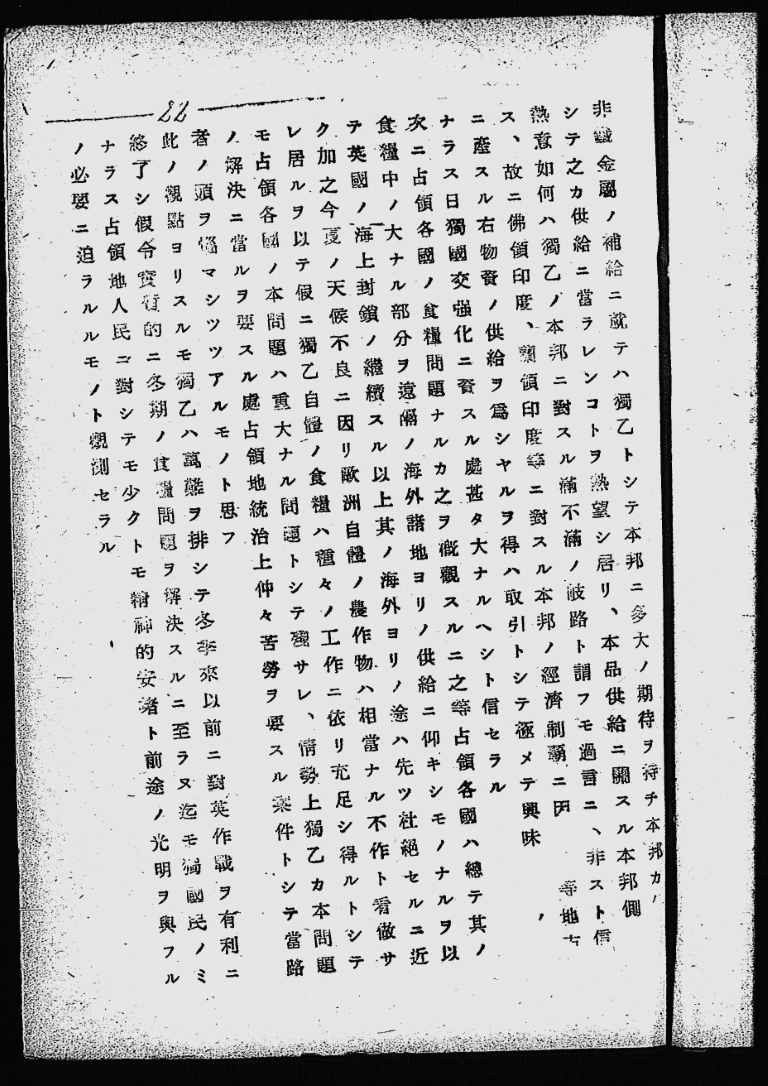 22
非鐵金屬ノ補給ニ就テハ獨乙トシテ本邦ニ多大ノ期待ヲ持チ本邦カ
シテ之カ供給ニ當ラレンコトヲ熱望シ居リ、本品供給ニ關スル本邦側
熱意如何ハ獨乙ノ本邦ニ對スル滿不滿ノ岐路ト謂フモ過言ニ、非スト信
ス、故ニ佛領印度、蘭領印度等ニ對スル本邦ノ經濟制覇ニ因 等地方
ニ産スル右物資ノ供給ヲ爲シヤルヲ得ハ取引トシテ極メテ興味 ノ
ナラス日獨國交强化ニ資スル處甚タ大ナルヘシト信セラル
次ニ占領各國ノ食糧問題ナルカ之ヲ概觀スルニ之等占領各國ハ總テ其ノ
食糧中ノ大ナル部分ヲ遠隔ノ海外諸地ヨリノ供給ニ仰キシモノナルヲ以
テ英國ノ海上封鎖ノ繼續スル以上其ノ海外ヨリノ途ハ先ツ杜絕セルニ近
ク加之今夏ノ天候不良ニ因リ歐洲自體ノ農作物ハ相當ナル不作ト看做サ
レ居ルヲ以テ假ニ獨乙自體ノ食糧ハ種々ノ工作ニ依リ充足シ得ルトシテ
モ占領各國ノ本問題ハ重大ナル問題トシテ殘サレ、情勢上獨乙カ本問題
ノ解決ニ當ルヲ要スル處占領地統治上仲々苦勞ヲ要スル案件トシテ當路
者ノ頭ヲ惱マシツツアルモノト思フ
此ノ觀點ヨリスルモ獨乙ハ萬難ヲ排シテ冬季來以前ニ對英作戰ヲ有利ニ
終了シ假令實質的ニ冬期ノ食糧問題ヲ解決スルニ至ラヌ迄モ獨國民ノミ
ナラス占領地人民ニ對シテモ少クトモ精神的安堵ト前途ノ光明ヲ與フル
ノ必要ニ迫ラルルモノト觀測セラル